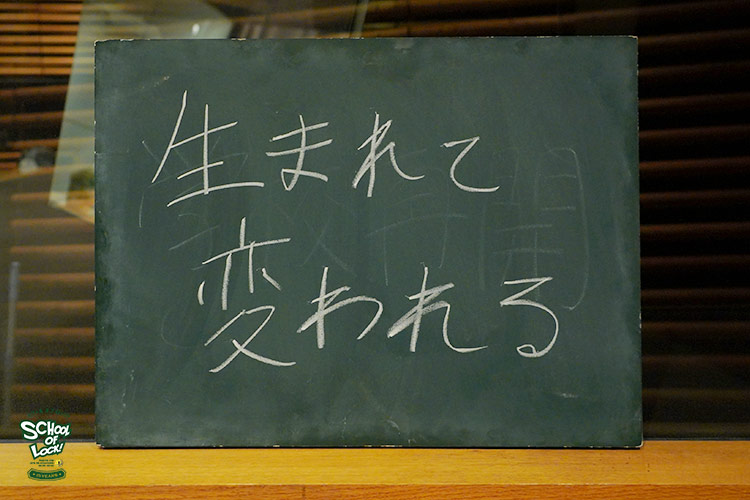 生まれて
変われる
SCHOOL
OF
LOCK!